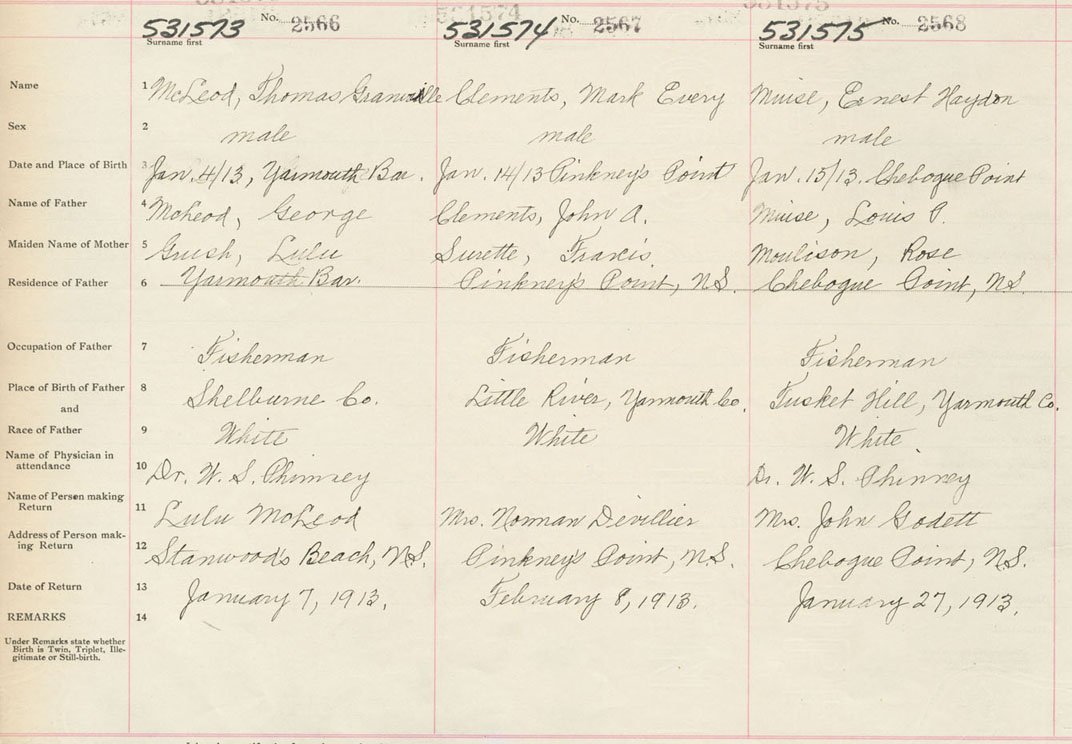 531573 No. 2566 531574 No. 2567 531575 No. 2568
Surname first Surname first Surname first
Name 1 McLeod, Thomas Granville Clements, Mark Every Muise, Ernest Haydon
Sex 2 male male male
Date and Place of Birth 3 Jan. 4/13, Yarmouth Bar. Jan. 14/13 Pinkney's Point Jan. 15/13. Chebogue Point
Name of Father 4 McLeod, George Clements, John A. Muise, Louis P.
Maiden Name of Mother 5 Grush, Lulu Surette, Francis Moulison, Rose
Residence of Father 6 Yarmouth Bar. Pinkney's Point, N.S. Chebogue Point, N.S.
Occupation of Father 7 Fisherman Fisherman Fisherman
Place of Birth of Father 8 Shelburne Co. Little River, Yarmouth Co. Tusket Hill, Yarmouth Co.
and
Race of Father 9 White White White
Name of Physician in
attendance 10 Dr. W. S. Phinney Dr. W. S. Phinney
Name of Person making
Return 11 Lulu McLeod Mrs. Norman Devillier Mrs. John Godett
Address of Person mak-
ing Return 12 Stanwood's Beach, N.S. Pinkney's Point, N.S. Chebogue Point, N.S.
Date of Return 13 January 7, 1913. February 8, 1913. January 27, 1913.
REMARKS 14
Under Remarks state whether
Birth is Twin, Triplet, Ille-
gitimate or Still-birth.